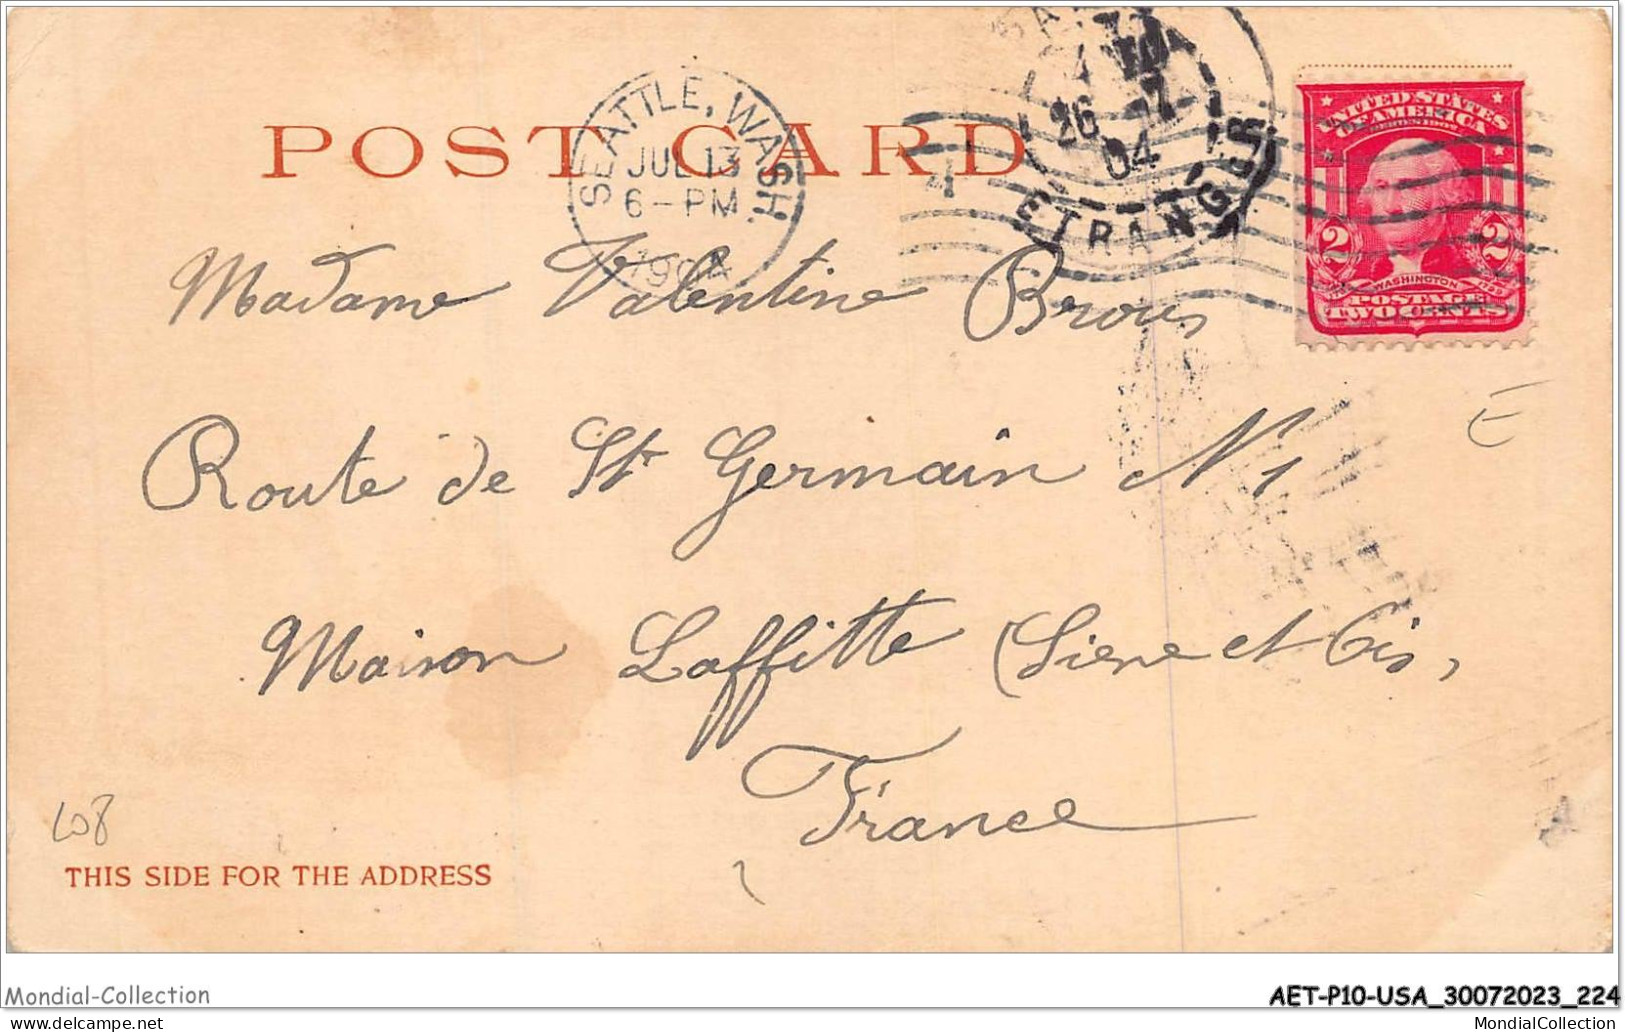 POST CARD
SEATTLE, WASH
JUL 13
6-PM
1904
4
26 -7
04
ETRANGER
UNITED STATES
OF AMERICA
SERIES 1902
2 2
WASHINGTON
POSTAGE
TWO CENTS
Madame Valentine Brous
Route de St Germain N 1
Maison Laffitte (Siene et Ois,
France
108
THIS SIDE FOR THE ADDRESS
Mondial-Collection
AET-P10-USA_30072023_224
www.delcampe.net
MondialCollection